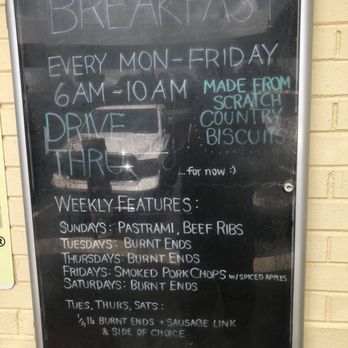 BREAKFAST
EVERY MON-FRIDAY
6AM-10AM
MADE FROM
SCRATCH
COUNTRY
BISCUITS
DRIVE
THRU
...for now :)
WEEKLY FEATURES:
SUNDAYS: PASTRAMI, BEEF RIBS
TUESDAYS: BURNT ENDS
THURSDAYS: BURNT ENDS
FRIDAYS: SMOKED PORK CHOPS W/SPICED APPLES
SATURDAYS: BURNT ENDS
TUES, THURS, SATS:
LB BURNT ENDS + SAUSAGE LINK
& SIDE OF CHOICE
®